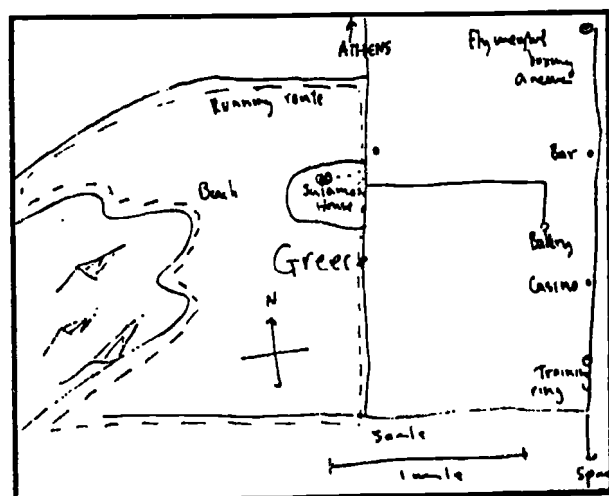 ATHENS
boxing
arena
Running route
Bar
Beach
House
Bakery
Greece
Casino
N
Training
ring
Scale
1 mile